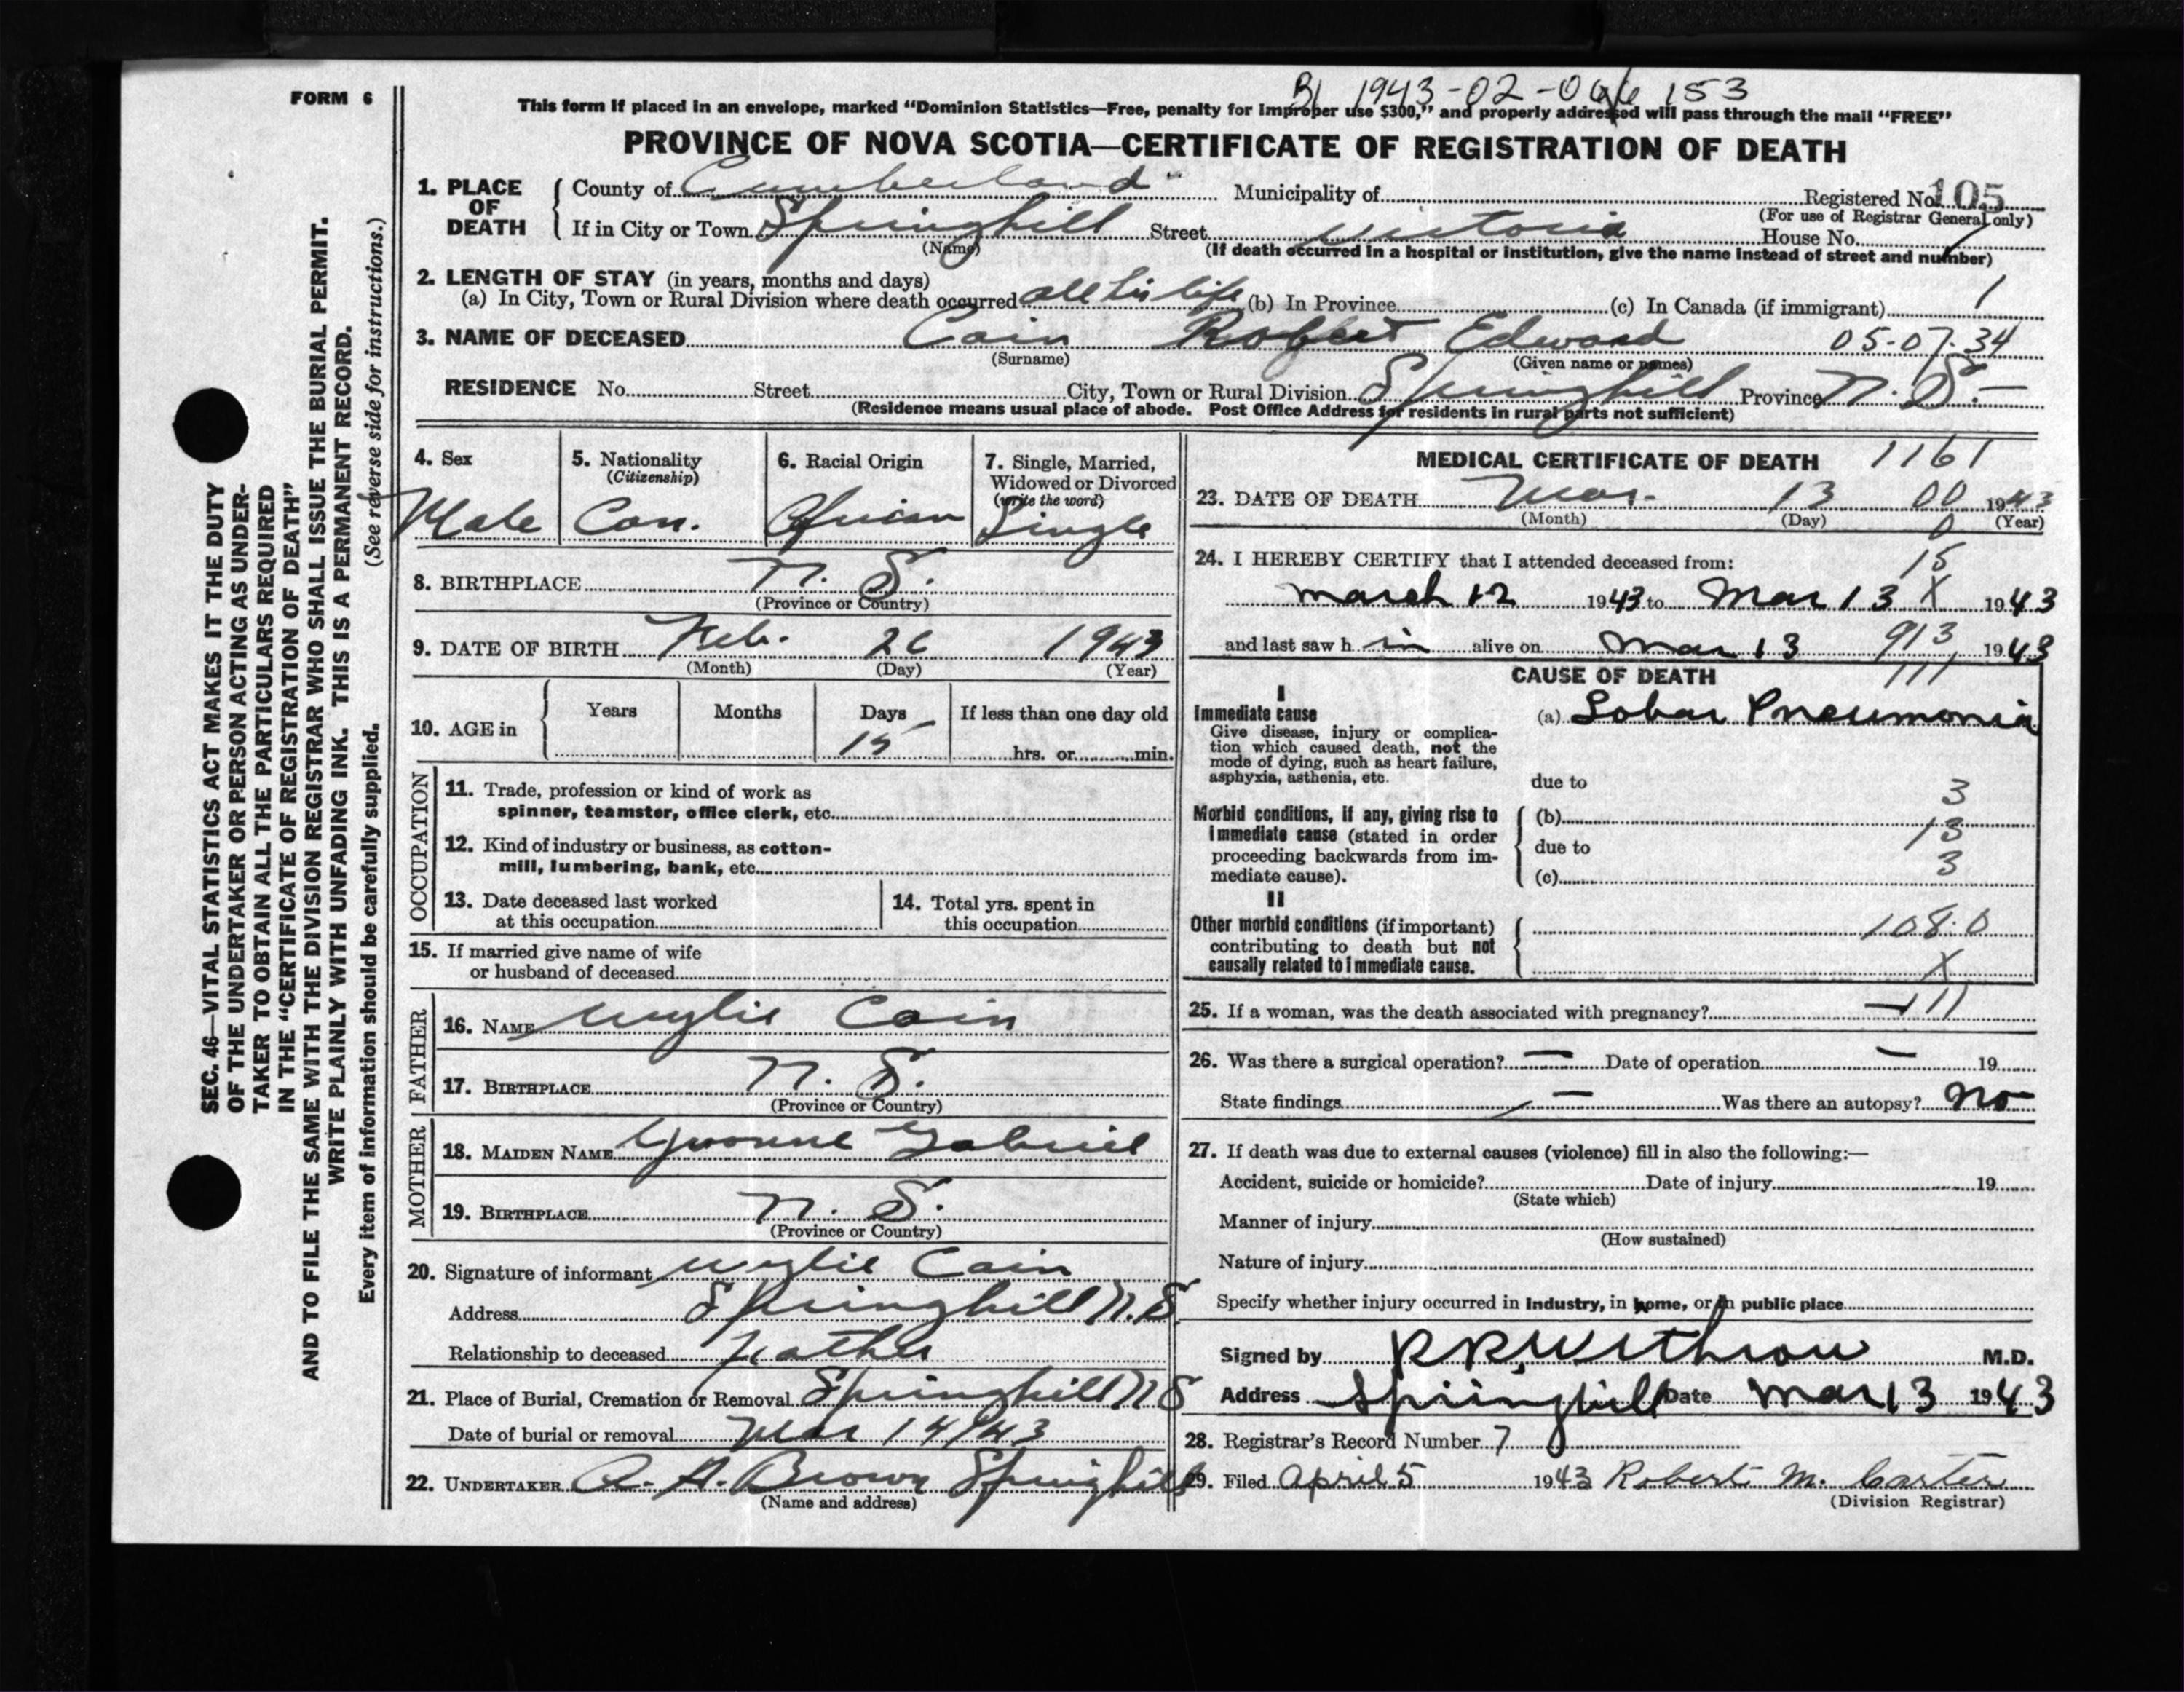 FORM 6
BI 1943-02-066 153
This form if placed in an envelope, marked “Dominion Statistics—Free, penalty for improper use $300,” and properly addressed will pass through the mail “FREE”
PROVINCE OF NOVA SCOTIA—CERTIFICATE OF REGISTRATION OF DEATH
1. PLACE OF DEATH County of Cumberland Municipality of Registered No. 105
(For use of Registrar General only)
If in City or Town Springhill Street Victoria House No.
(Name) (If death occurred in a hospital or institution, give the name instead of street and number)
2. LENGTH OF STAY (in years, months and days)
(a) In City, Town or Rural Division where death occurred all his life (b) In Province (c) In Canada (if immigrant) 1
3. NAME OF DECEASED Cain Robert Edward 05-07-34
(Surname) (Given name or names)
RESIDENCE No. Street City, Town or Rural Division Springhill Province N.S.
(Residence means usual place of abode. Post Office Address for residents in rural parts not sufficient)
4. Sex Male
5. Nationality (Citizenship) Can.
6. Racial Origin African
7. Single, Married, Widowed or Divorced (write the word) Single
8. BIRTHPLACE N. S.
(Province or Country)
9. DATE OF BIRTH Feb. 26 1943
(Month) (Day) (Year)
10. AGE in Years Months Days If less than one day old
15 hrs. or min.
OCCUPATION
11. Trade, profession or kind of work as
spinner, teamster, office clerk, etc.
12. Kind of industry or business, as cotton-
mill, lumbering, bank, etc.
13. Date deceased last worked
at this occupation
14. Total yrs. spent in
this occupation
15. If married give name of wife
or husband of deceased
FATHER
16. NAME Wylie Cain
17. BIRTHPLACE N. S.
(Province or Country)
MOTHER
18. MAIDEN NAME Yvonne Gabriel
19. BIRTHPLACE N. S.
(Province or Country)
20. Signature of informant Wylie Cain
Address Springhill N.S
Relationship to deceased Father
21. Place of Burial, Cremation or Removal Springhill N S
Date of burial or removal Mar 14/43
22. UNDERTAKER A. H. Brown Springhill
(Name and address)
MEDICAL CERTIFICATE OF DEATH 1161
23. DATE OF DEATH Mar. 13 00 1943
(Month) (Day) 0 (Year)
24. I HEREBY CERTIFY that I attended deceased from:
15
March 12 1943 to Mar 13 X 1943
and last saw h im alive on Mar 13 913 1943
CAUSE OF DEATH 111
I
Immediate cause
Give disease, injury or complica-
tion which caused death, not the
mode of dying, such as heart failure,
asphyxia, asthenia, etc.
(a) Lobar Pneumonia
due to
3
Morbid conditions, if any, giving rise to
immediate cause (stated in order
proceeding backwards from im-
mediate cause).
(b) 13
due to
3
(c)
II
Other morbid conditions (if important)
contributing to death but not
causally related to immediate cause.
108.0
X
25. If a woman, was the death associated with pregnancy? 111
26. Was there a surgical operation? — Date of operation — 19
State findings — Was there an autopsy? No
27. If death was due to external causes (violence) fill in also the following:—
Accident, suicide or homicide? Date of injury 19
(State which)
Manner of injury
(How sustained)
Nature of injury
Specify whether injury occurred in Industry, in home, or in public place
Signed by R R Withrow M.D.
Address Springhill Date Mar 13 1943
28. Registrar's Record Number 7
29. Filed April 5 1943 Robert M. Carter
(Division Registrar)
SEC. 46—VITAL STATISTICS ACT MAKES IT THE DUTY
OF THE UNDERTAKER OR PERSON ACTING AS UNDER-
TAKER TO OBTAIN ALL THE PARTICULARS REQUIRED
IN THE “CERTIFICATE OF REGISTRATION OF DEATH”
AND TO FILE THE SAME WITH THE DIVISION REGISTRAR WHO SHALL ISSUE THE BURIAL PERMIT.
WRITE PLAINLY WITH UNFADING INK. THIS IS A PERMANENT RECORD.
Every item of information should be carefully supplied. (See reverse side for instructions.)